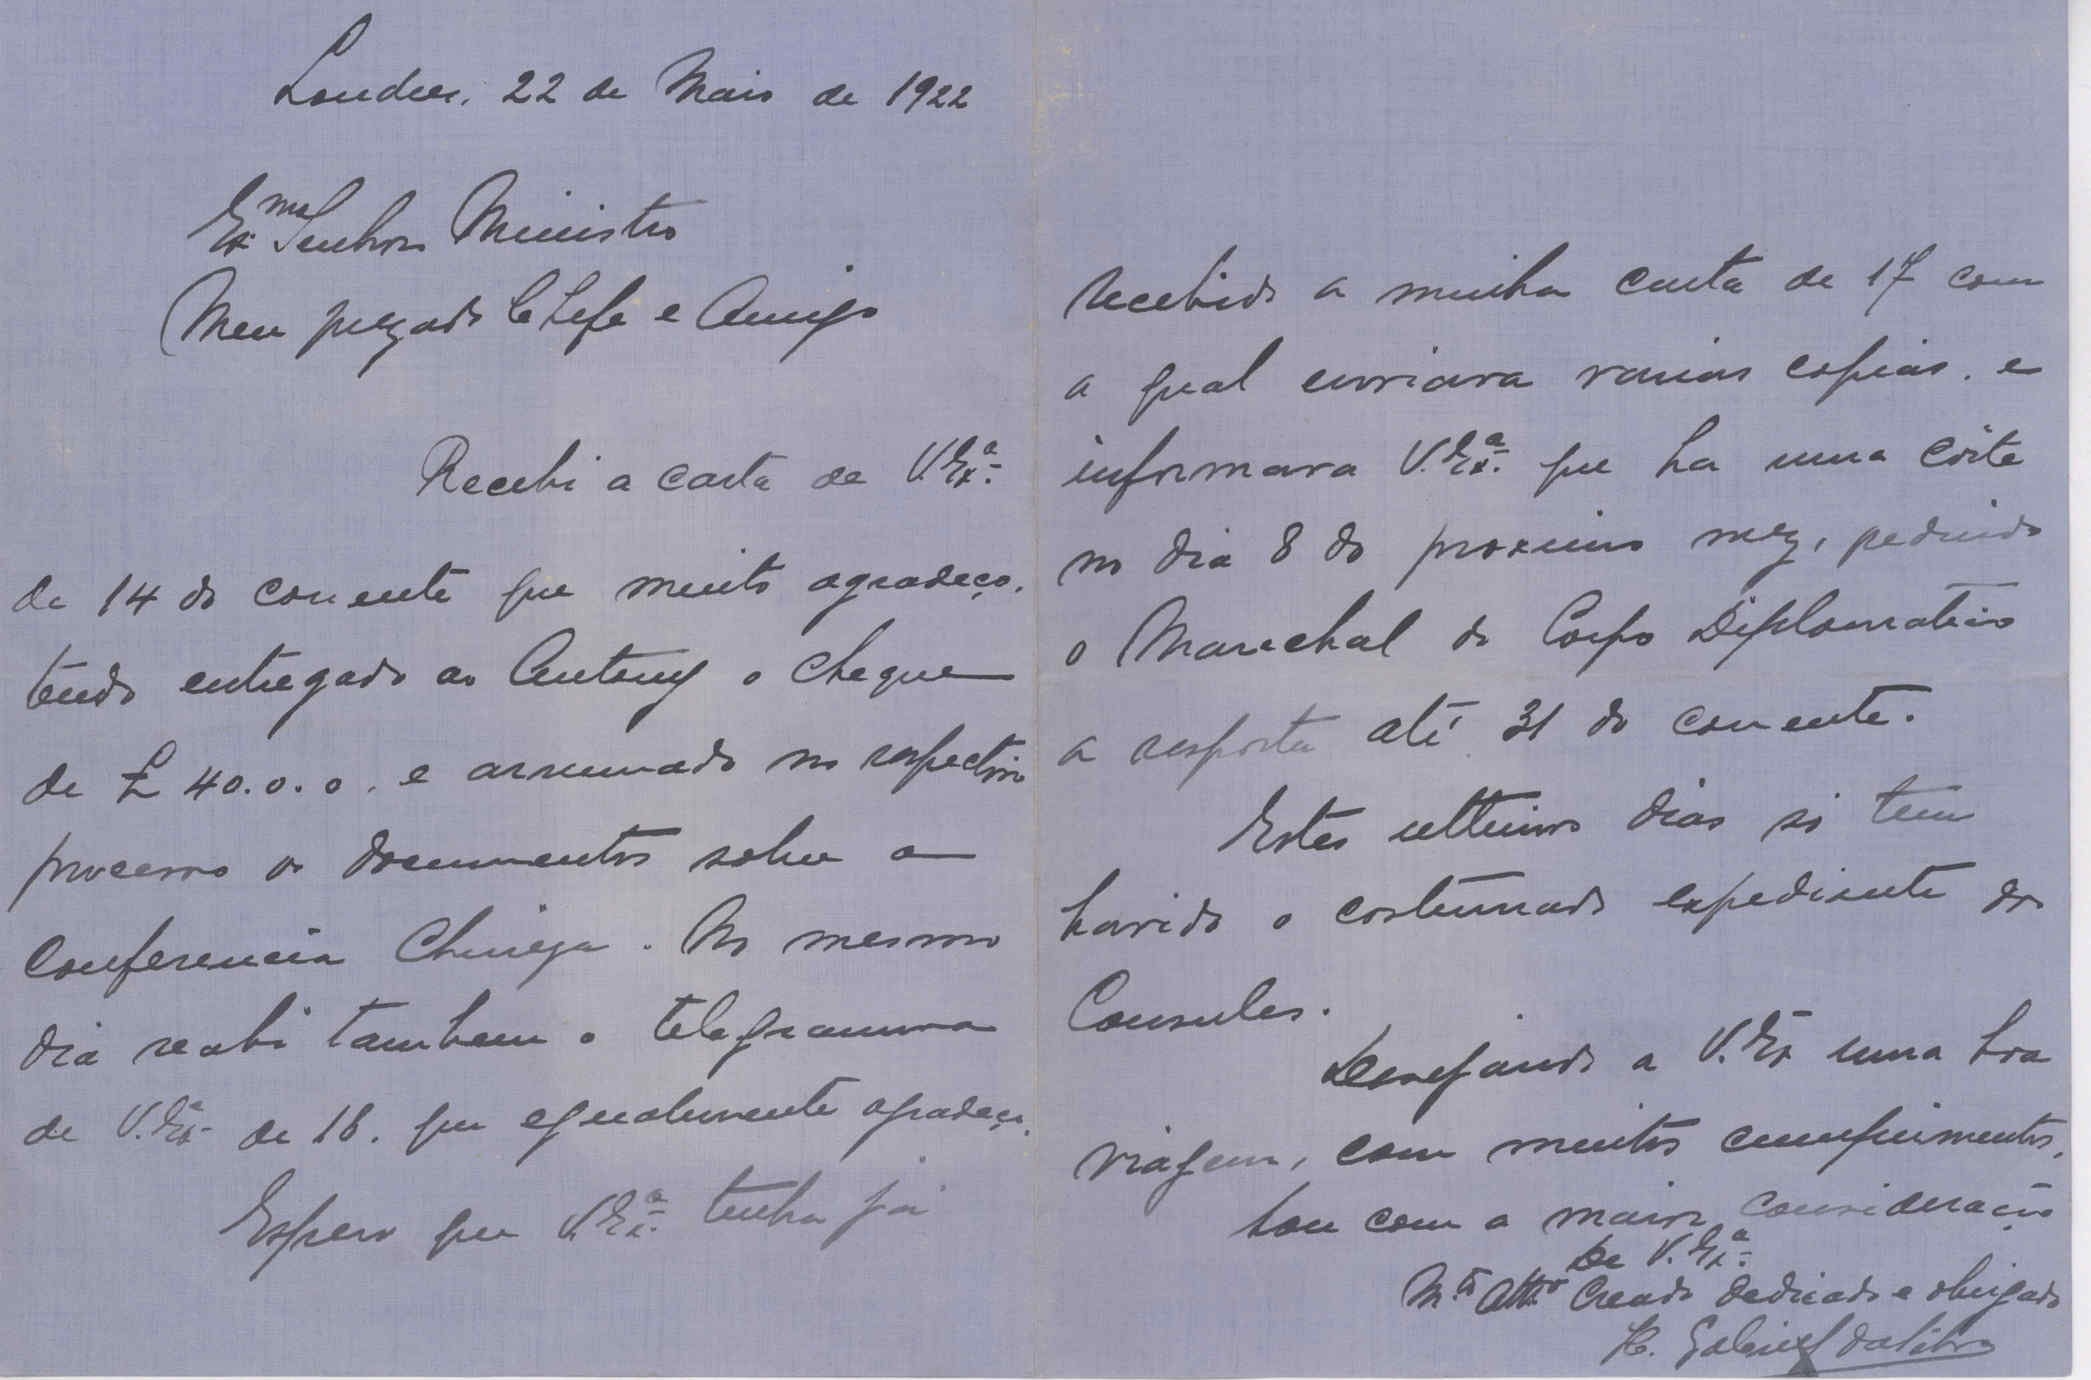 Londres, 22 de Maio de 1922
Exmo Senhor Ministro
Meu prezado Chefe e Amigo
Recebi a carta de V. Exª.
de 14 do corrente que muito agradeço,
tendo entregado ao Antony o cheque
de £ 40.0.0. e arrumado no respectivo
processo os documentos sobre a
Conferencia Chineza. No mesmo
dia recebi tambem o telegramma
de V. Exª de 18. que egualmente agradeço.
Espero que V. Exª. tenha já
recebido a minha carta de 17 com
a qual enviava varias copias, e
informava V. Exª. que ha uma Côrte
no dia 8 do proximo mez, pedindo
o Marechal do Corpo Diplomatico
a resposta até 31 do corrente.
Estes ultimos dias só tem
havido o costumado expediente dos
Consules.
Desejando a V. Exª uma boa
viagem, com muitos cumprimentos,
Sou com a maior consideração
De V. Exª.
Mto Atto Creado dedicado e obrigado
Gabriel da Silva